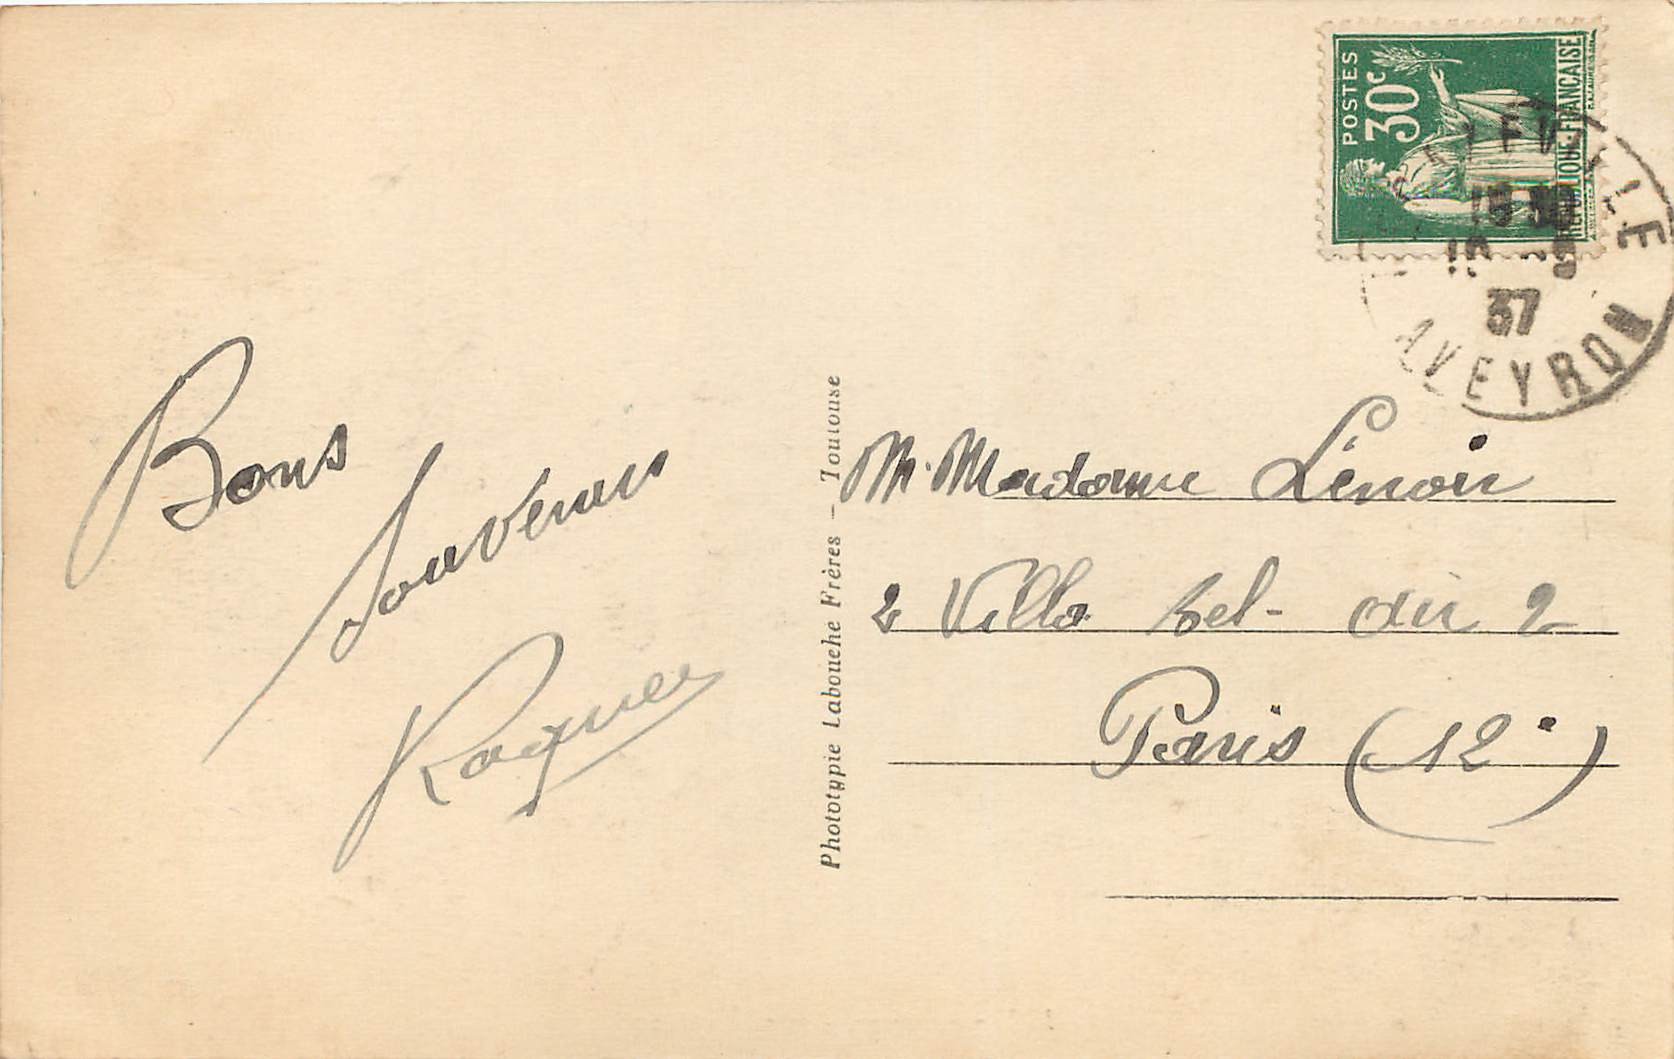 POSTES
30c
REPUBLIQUE-FRANÇAISE
37
AVEYRON
Bons
souvenirs
M. Madame Lenoir
2 Villa bel-air 2
Paris (12e)
Phototypie Labouche Frères — Toulouse